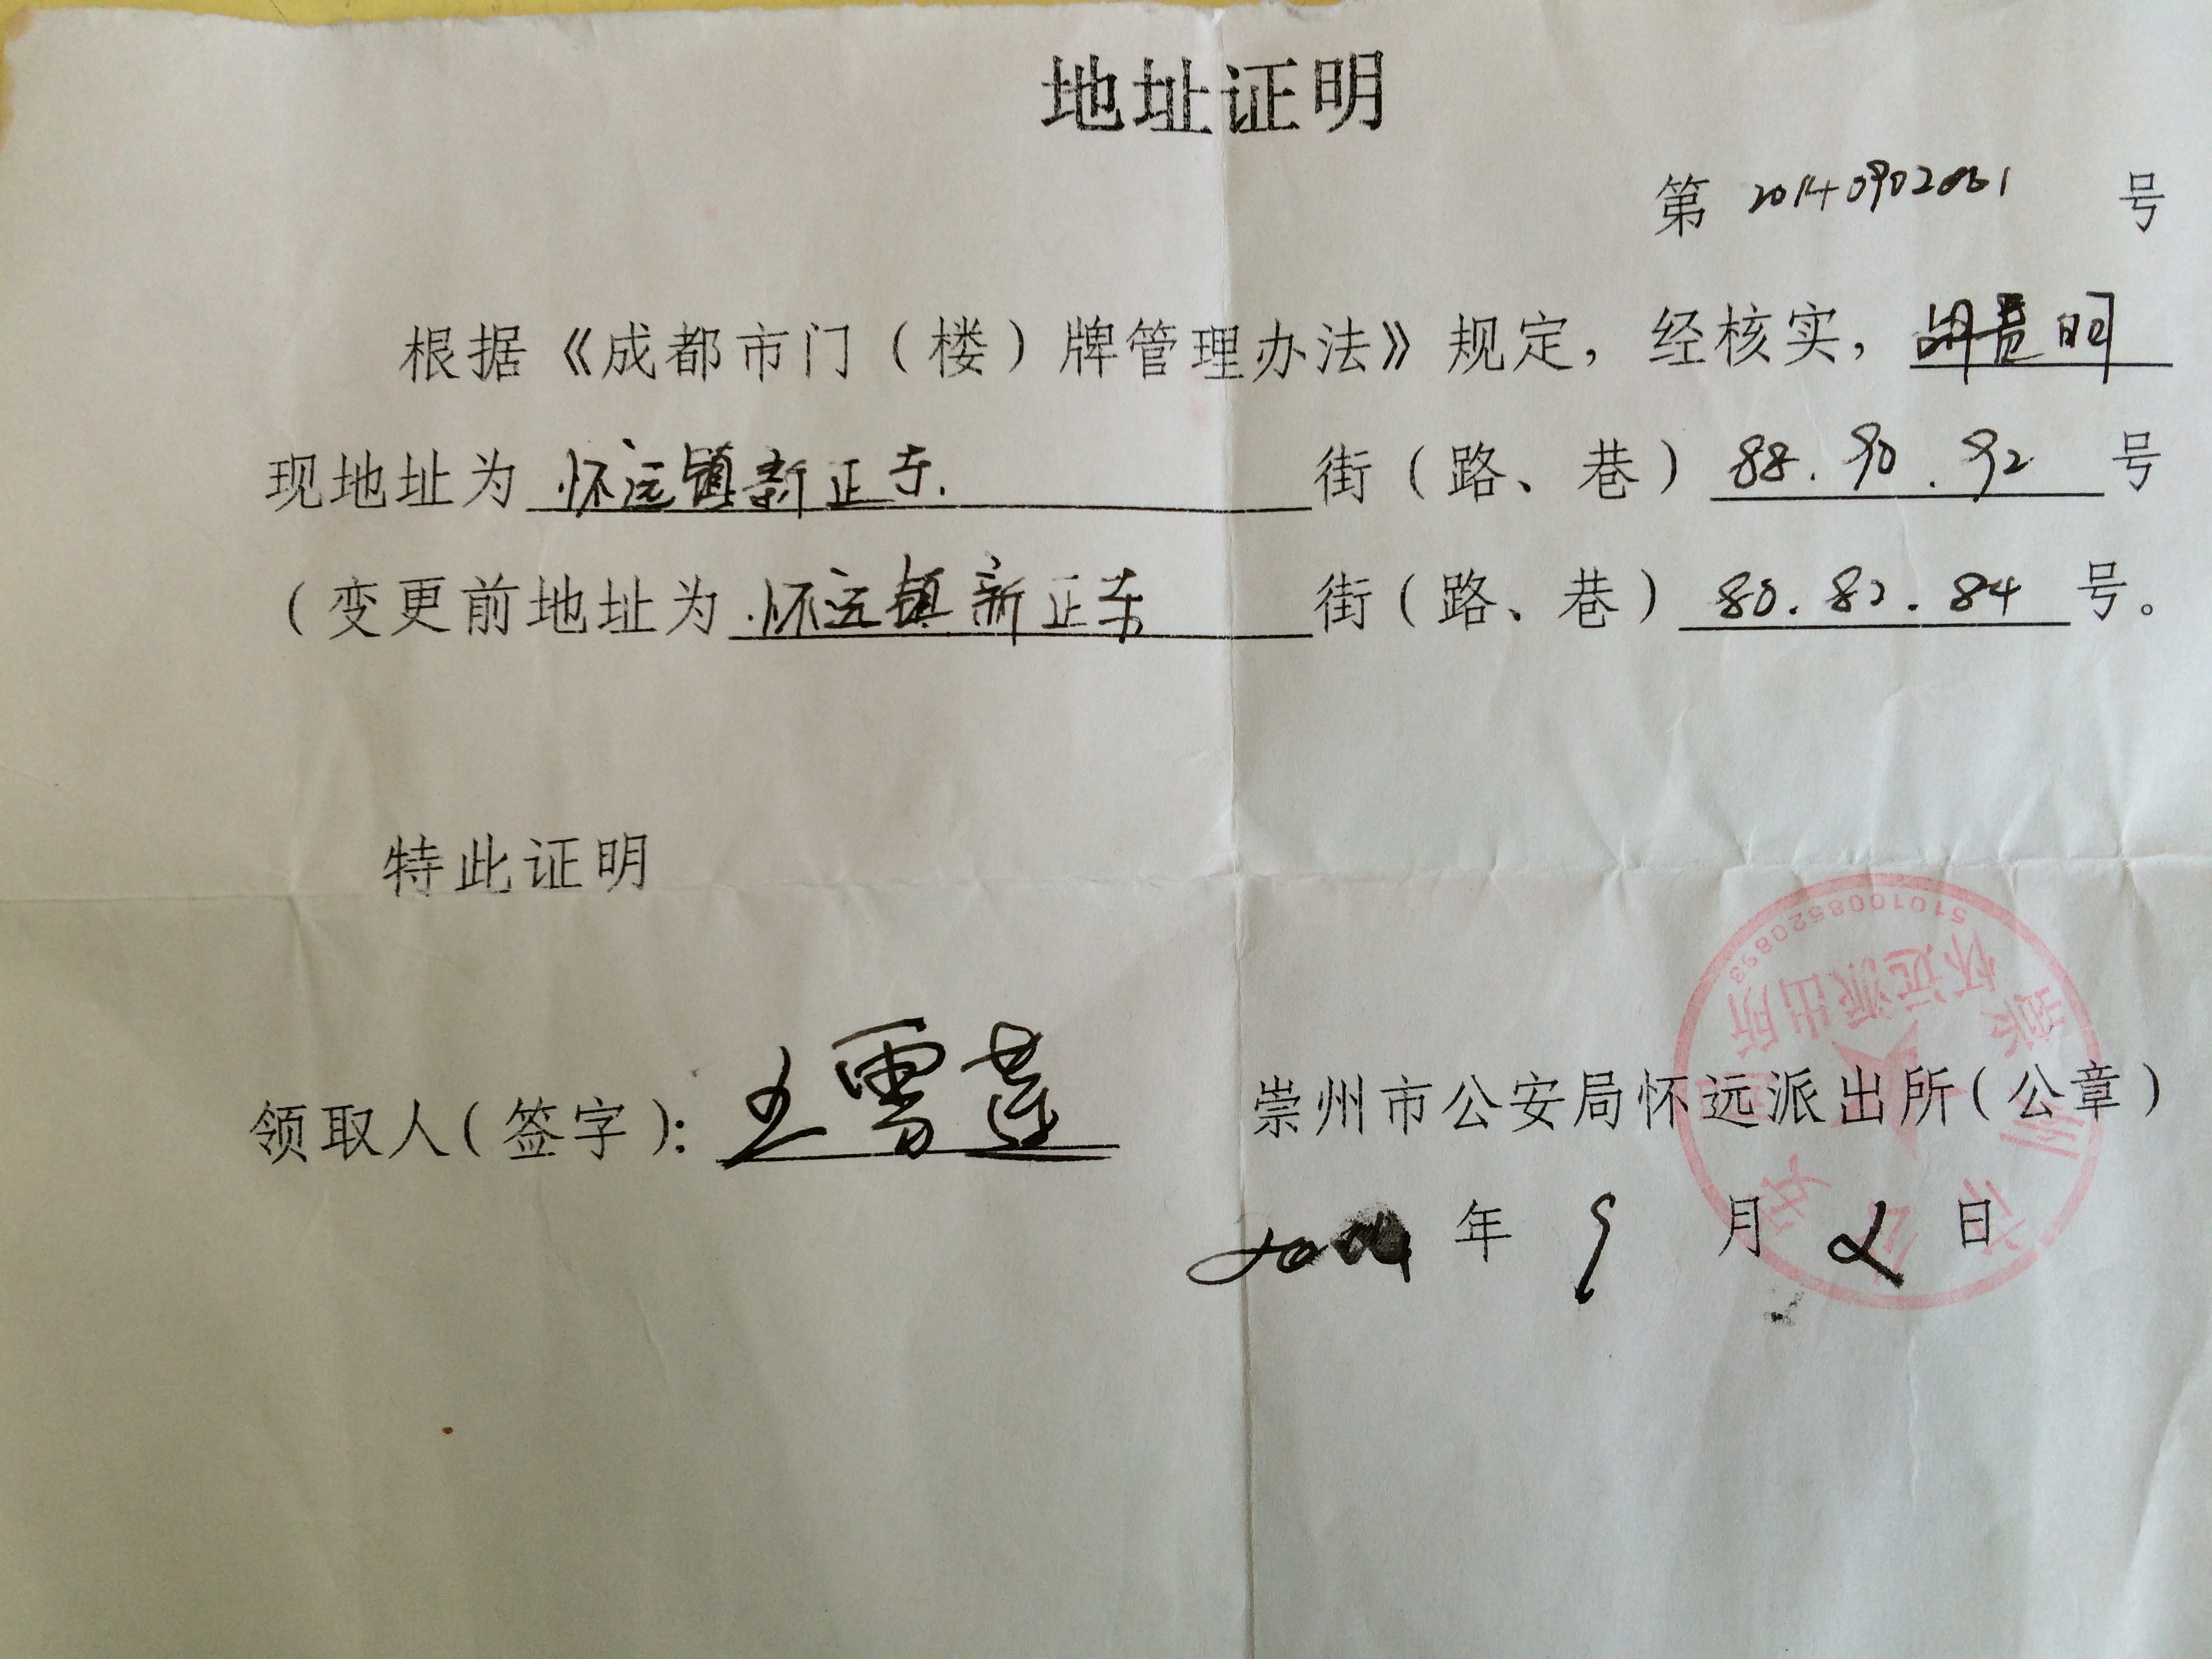 地址证明
第 20140902001 号
根据《成都市门（楼）牌管理办法》规定，经核实，胡贵明
现地址为 怀远镇新正东 街（路、巷）88.90.92 号
（变更前地址为 怀远镇新正东 街（路、巷）80.82.84 号。
特此证明
领取人（签字）：王雪莲
崇州市公安局怀远派出所（公章）
2014 年 9 月 2 日
崇州市公安局
怀远派出所
5101008520893